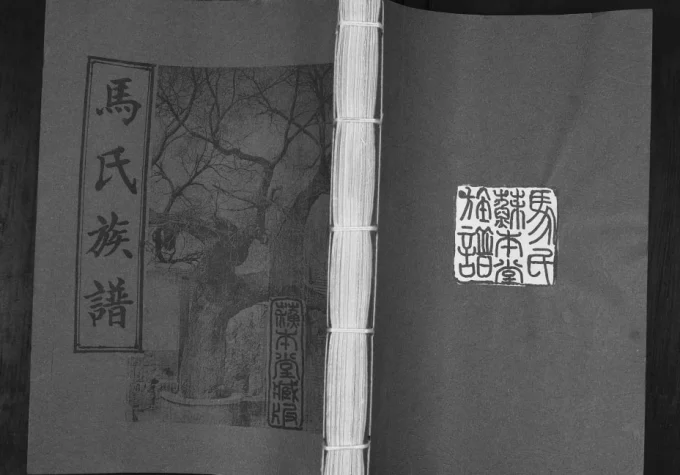 馬氏族譜
蘋本堂藏板
馬氏
蘋本堂
族譜